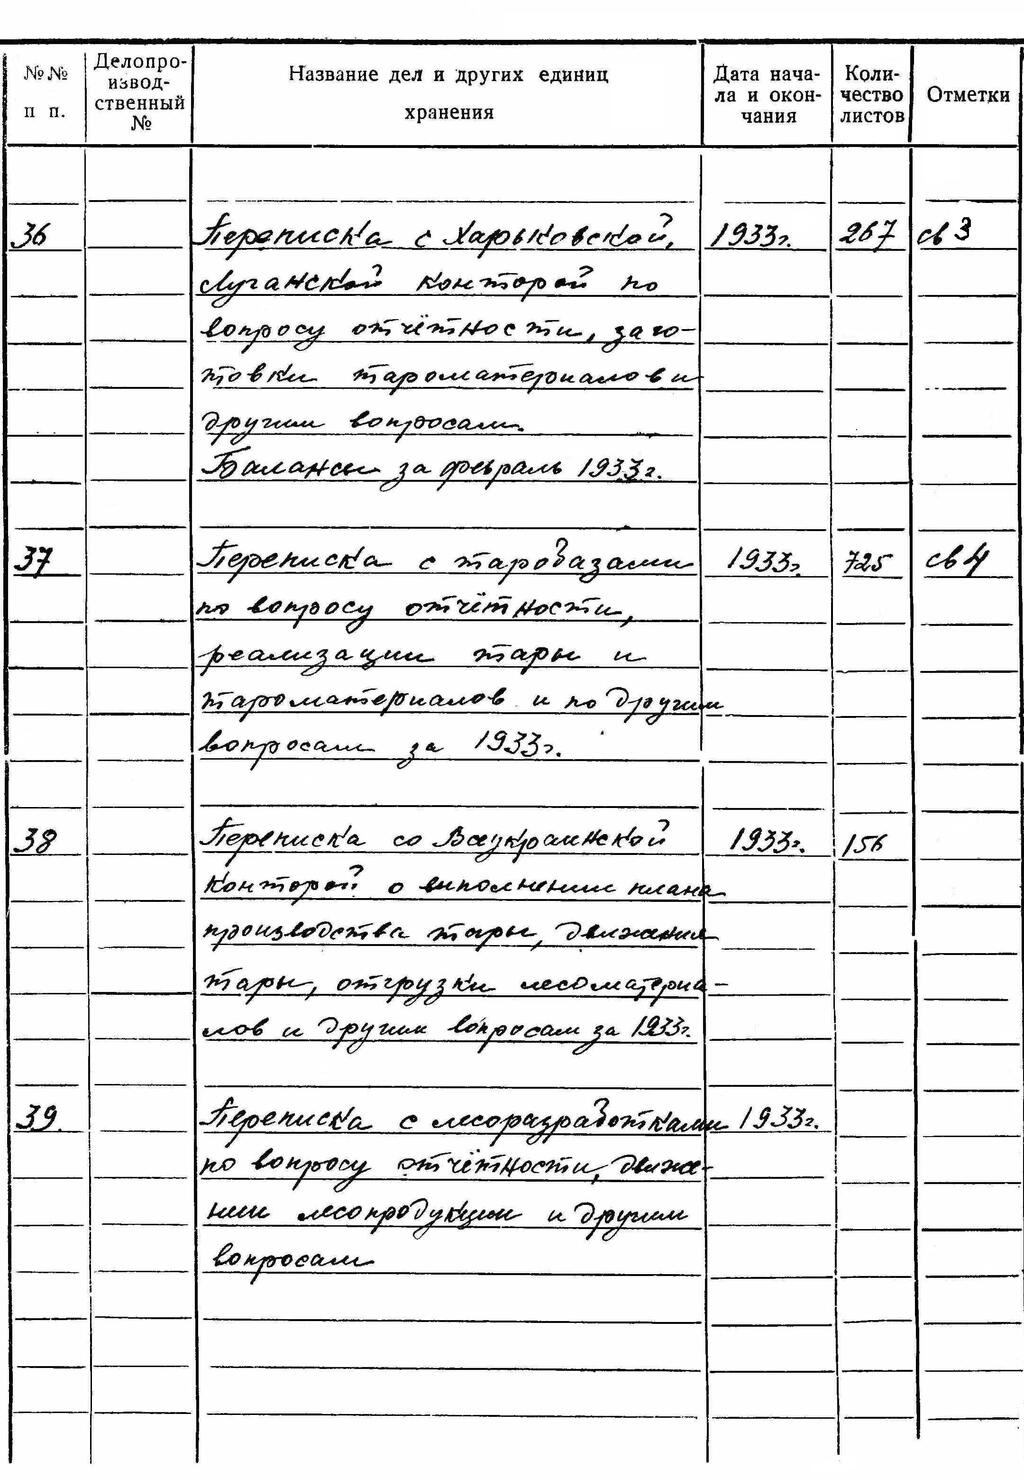 №№ п п.
Делопро-
извод-
ственный
№
Название дел и других единиц
хранения
Дата нача-
ла и окон-
чания
Коли-
чество
листов
Отметки
36 Переписка с Харьковской, 1933г. 267 св 3
Луганской конторой по
вопросу отчётности, заго-
товки тароматериалов и
другим вопросам.
Балансы за февраль 1933г.
37 Переписка с таробазами 1933г. 725 св 4
по вопросу отчётности,
реализации тары и
тароматериалов и по другим
вопросам за 1933г.
38 Переписка со Всеукраинской 1933г. 156
конторой о выполнении плана
производства тары, движения
тары, отгрузки лесоматериа-
лов и другим вопросам за 1933г.
39. Переписка с лесоразработками 1933г.
по вопросу отчётности, движе-
нии лесопродукции и другим
вопросам